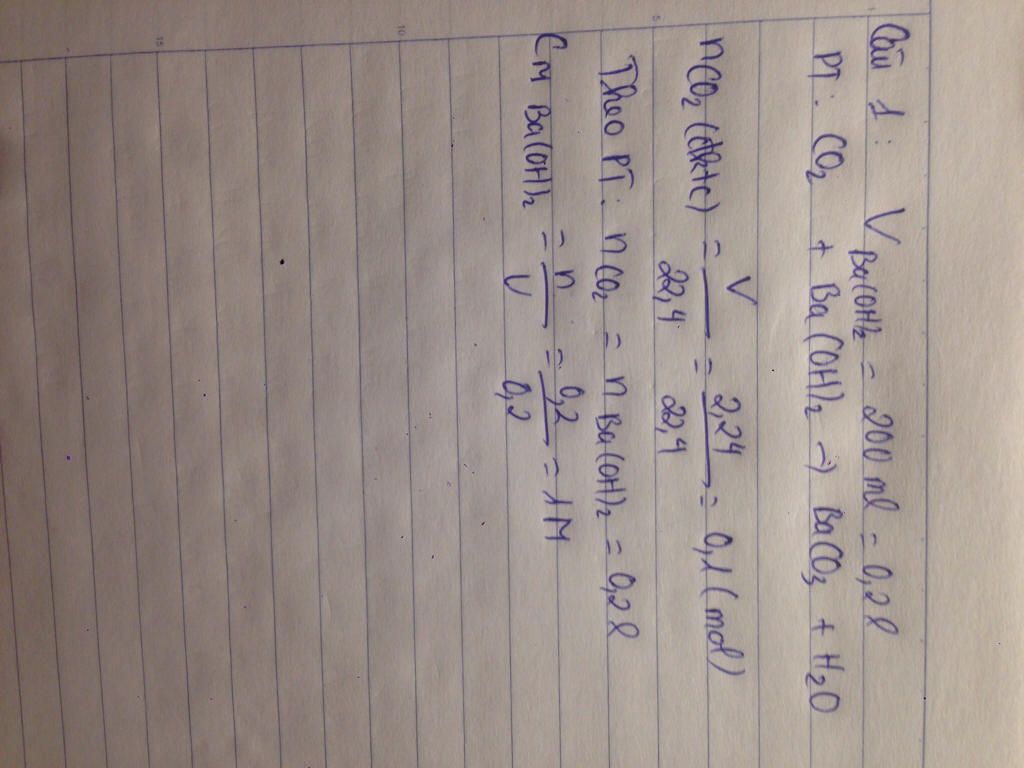 Câu 1 : V Ba(OH)2 = 200 ml = 0,2 l
PT : CO2 + Ba(OH)2 → BaCO3 + H2O
nCO2 (đktc) = V/22,4 = 2,24/22,4 = 0,1 (mol)
Theo PT : n CO2 = n Ba(OH)2 = 0,2 l
CM Ba(OH)2 = n/V = 0,2/0,2 = 1M
5
10
15